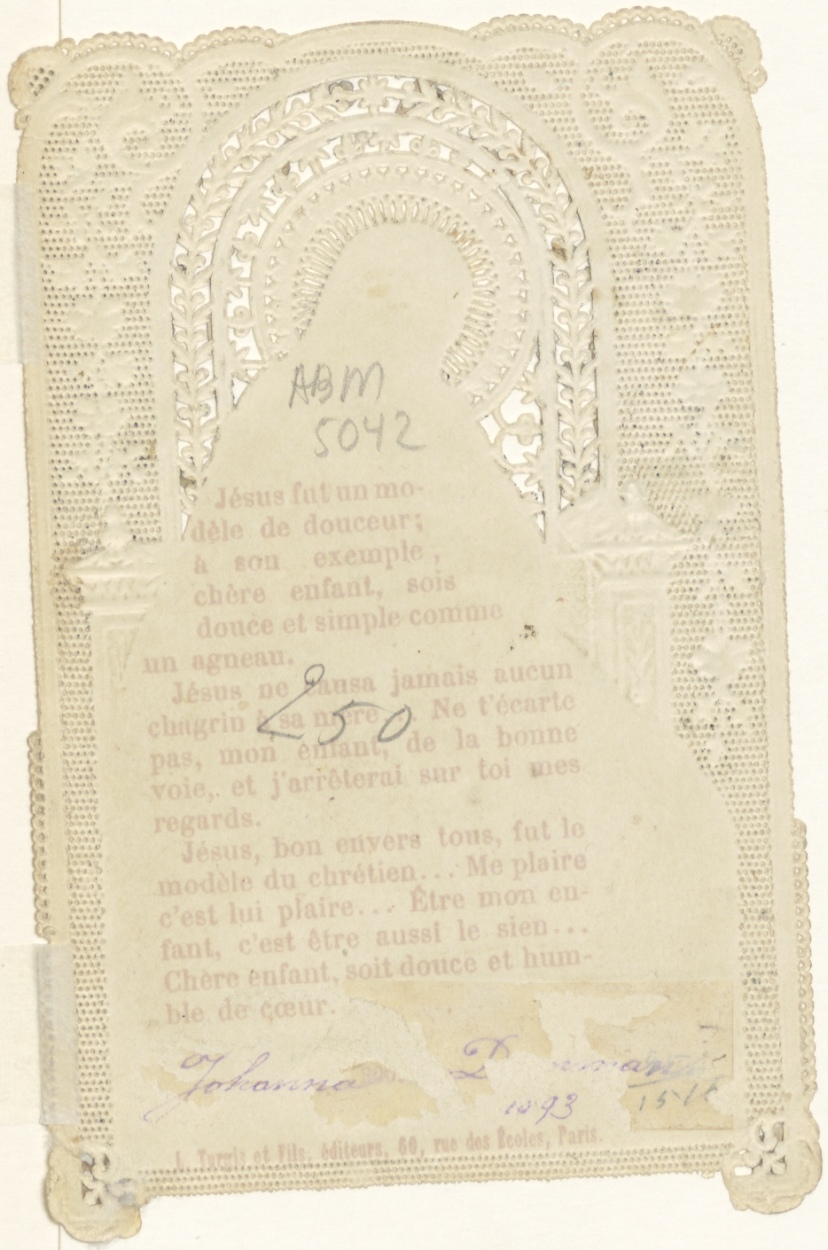 ABM
5042
Jésus fut un mo-
dèle de douceur;
à son exemple,
chère enfant, sois
douce et simple comme
un agneau.
Jésus ne causa jamais aucun
chagrin à sa mère Ne t'écarte
pas, mon enfant, de la bonne
voie, et j'arrêterai sur toi mes
regards.
250
Jésus, bon envers tous, fut le
modèle du chrétien... Me plaire
c'est lui plaire... Être mon en-
fant, c'est être aussi le sien...
Chère enfant, soit douce et hum-
ble de cœur.
Johanna
1893
L. Turgis et Fils, éditeurs, 60, rue des Écoles, Paris.